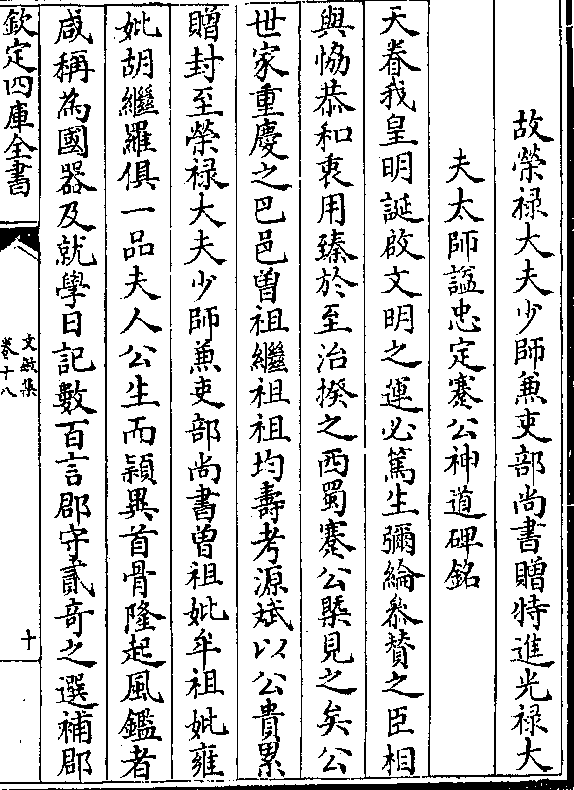 故榮禄大夫少師兼吏部尚書贈特進光禄大
夫太師諡忠定蹇公神道碑銘
天眷我皇明誕啟文明之運必篤生彌綸參賛之臣相
與恊恭和衷用臻於至治揆之西蜀蹇公槩見之矣公
世家重慶之巴邑曽祖繼祖祖均壽考源斌以公貴累
贈封至榮禄大夫少師兼吏部尚書曽祖妣牟祖妣雍
妣胡繼羅俱一品夫人公生而頴異首骨隆起風鑑者
咸稱為國器及就學日記數百言郡守貳奇之選補郡
欽定四庫全書
文敏集
卷十八
十